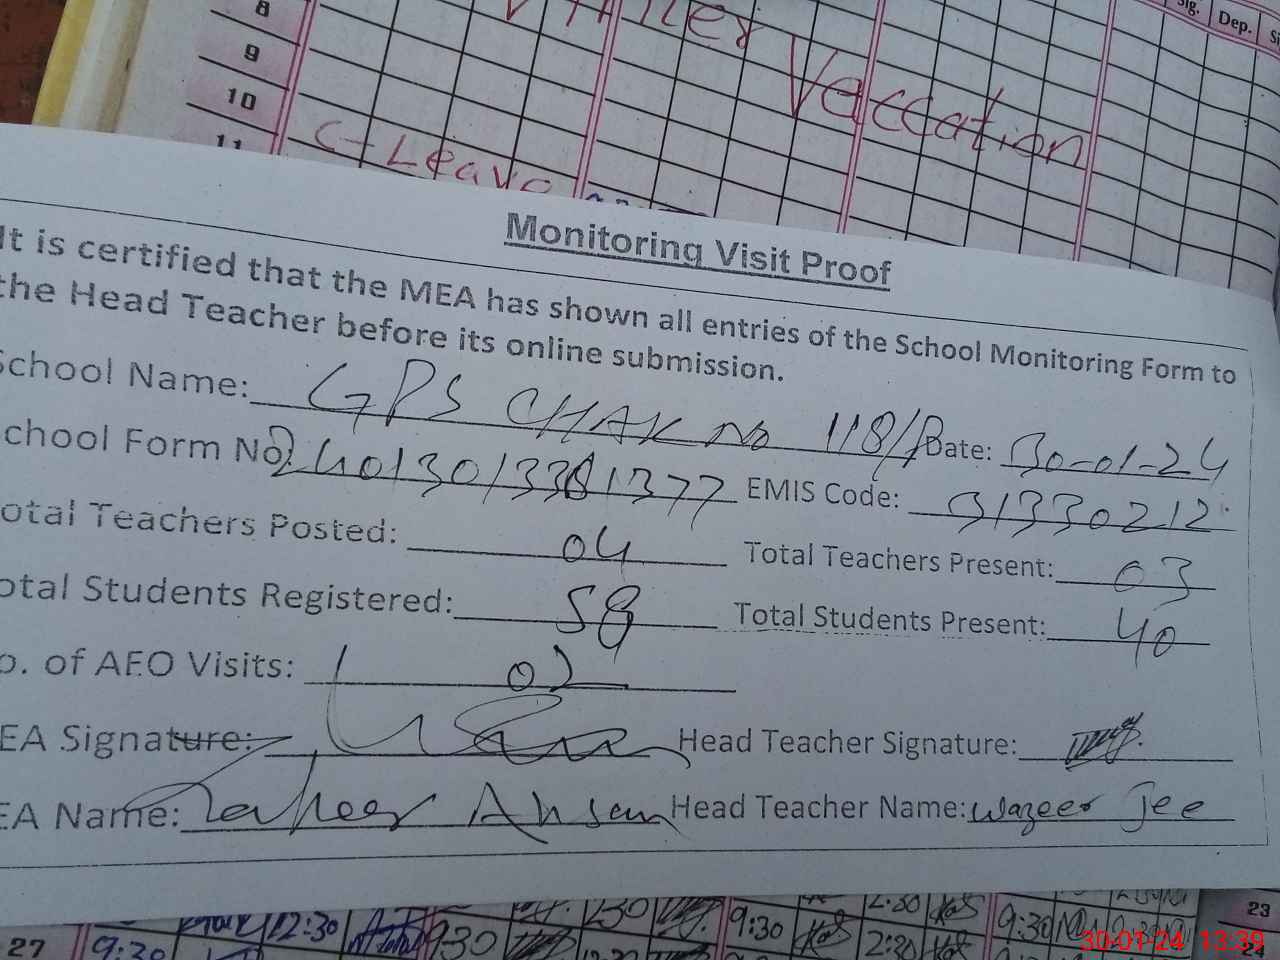 8
9
10
11
Sig. Dep.
Winter Veccation
C-Leave
Monitoring Visit Proof
It is certified that the MEA has shown all entries of the School Monitoring Form to
the Head Teacher before its online submission.
School Name: GPS CHAK No 118/P Date: 30-01-24
chool Form No 24013013381377 EMIS Code: 31330212
otal Teachers Posted: 04 Total Teachers Present: 03
otal Students Registered: 58 Total Students Present: 40
o. of AEO Visits: 02
EA Signature: Head Teacher Signature:
EA Name: Zaheer Ahsan Head Teacher Name: Wazeer Jee
12:30 230 9:30 2:30 9:30
27 9:30 2:30 23
24
30-01-24 13:39